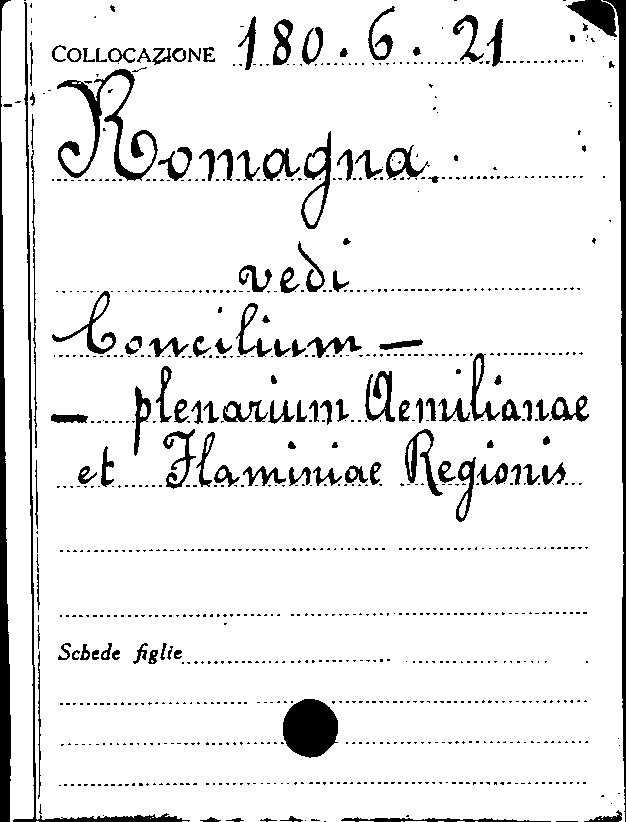 COLLOCAZIONE 180.6.21
Romagna.
vedi
Concilium —
— plenarium Aemilianae
et Flaminiae Regionis
Schede figlie